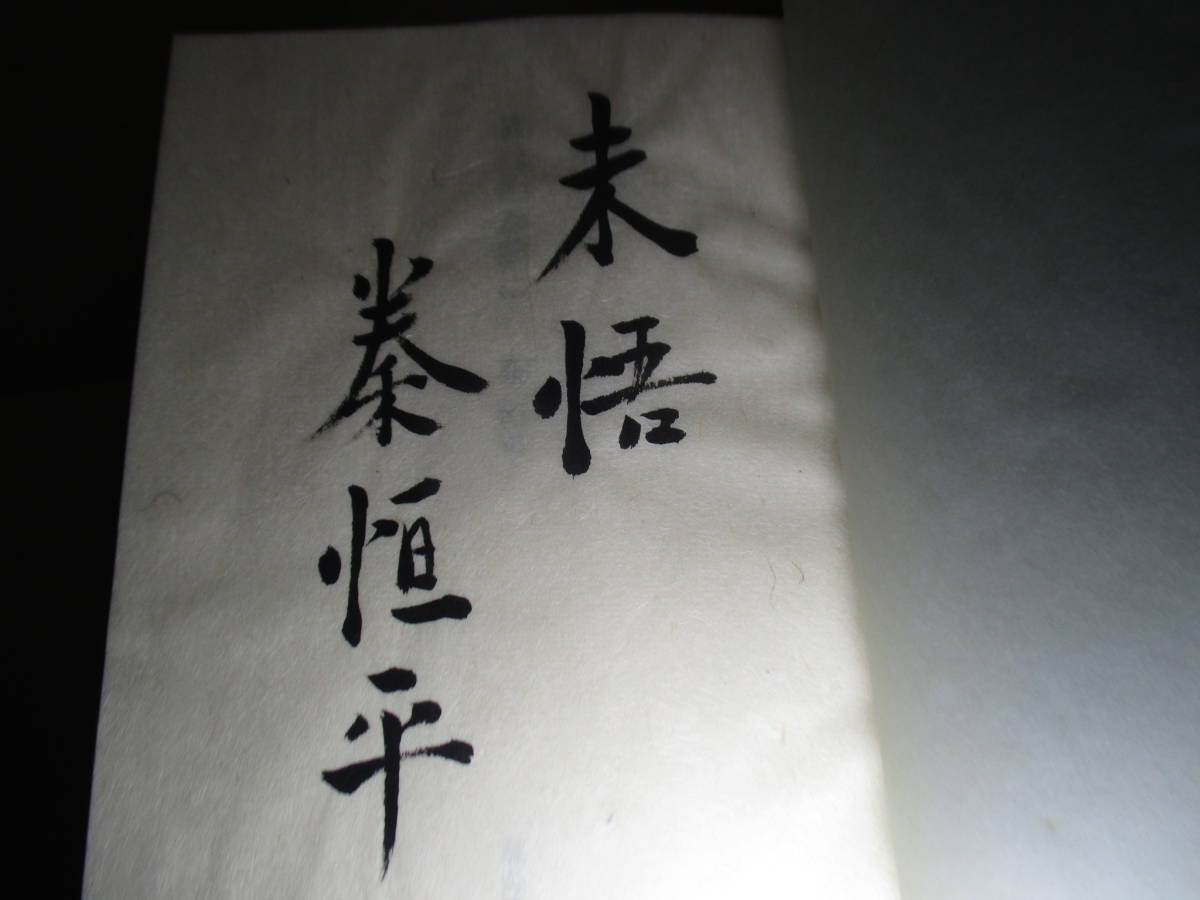 未悟
秦恒平